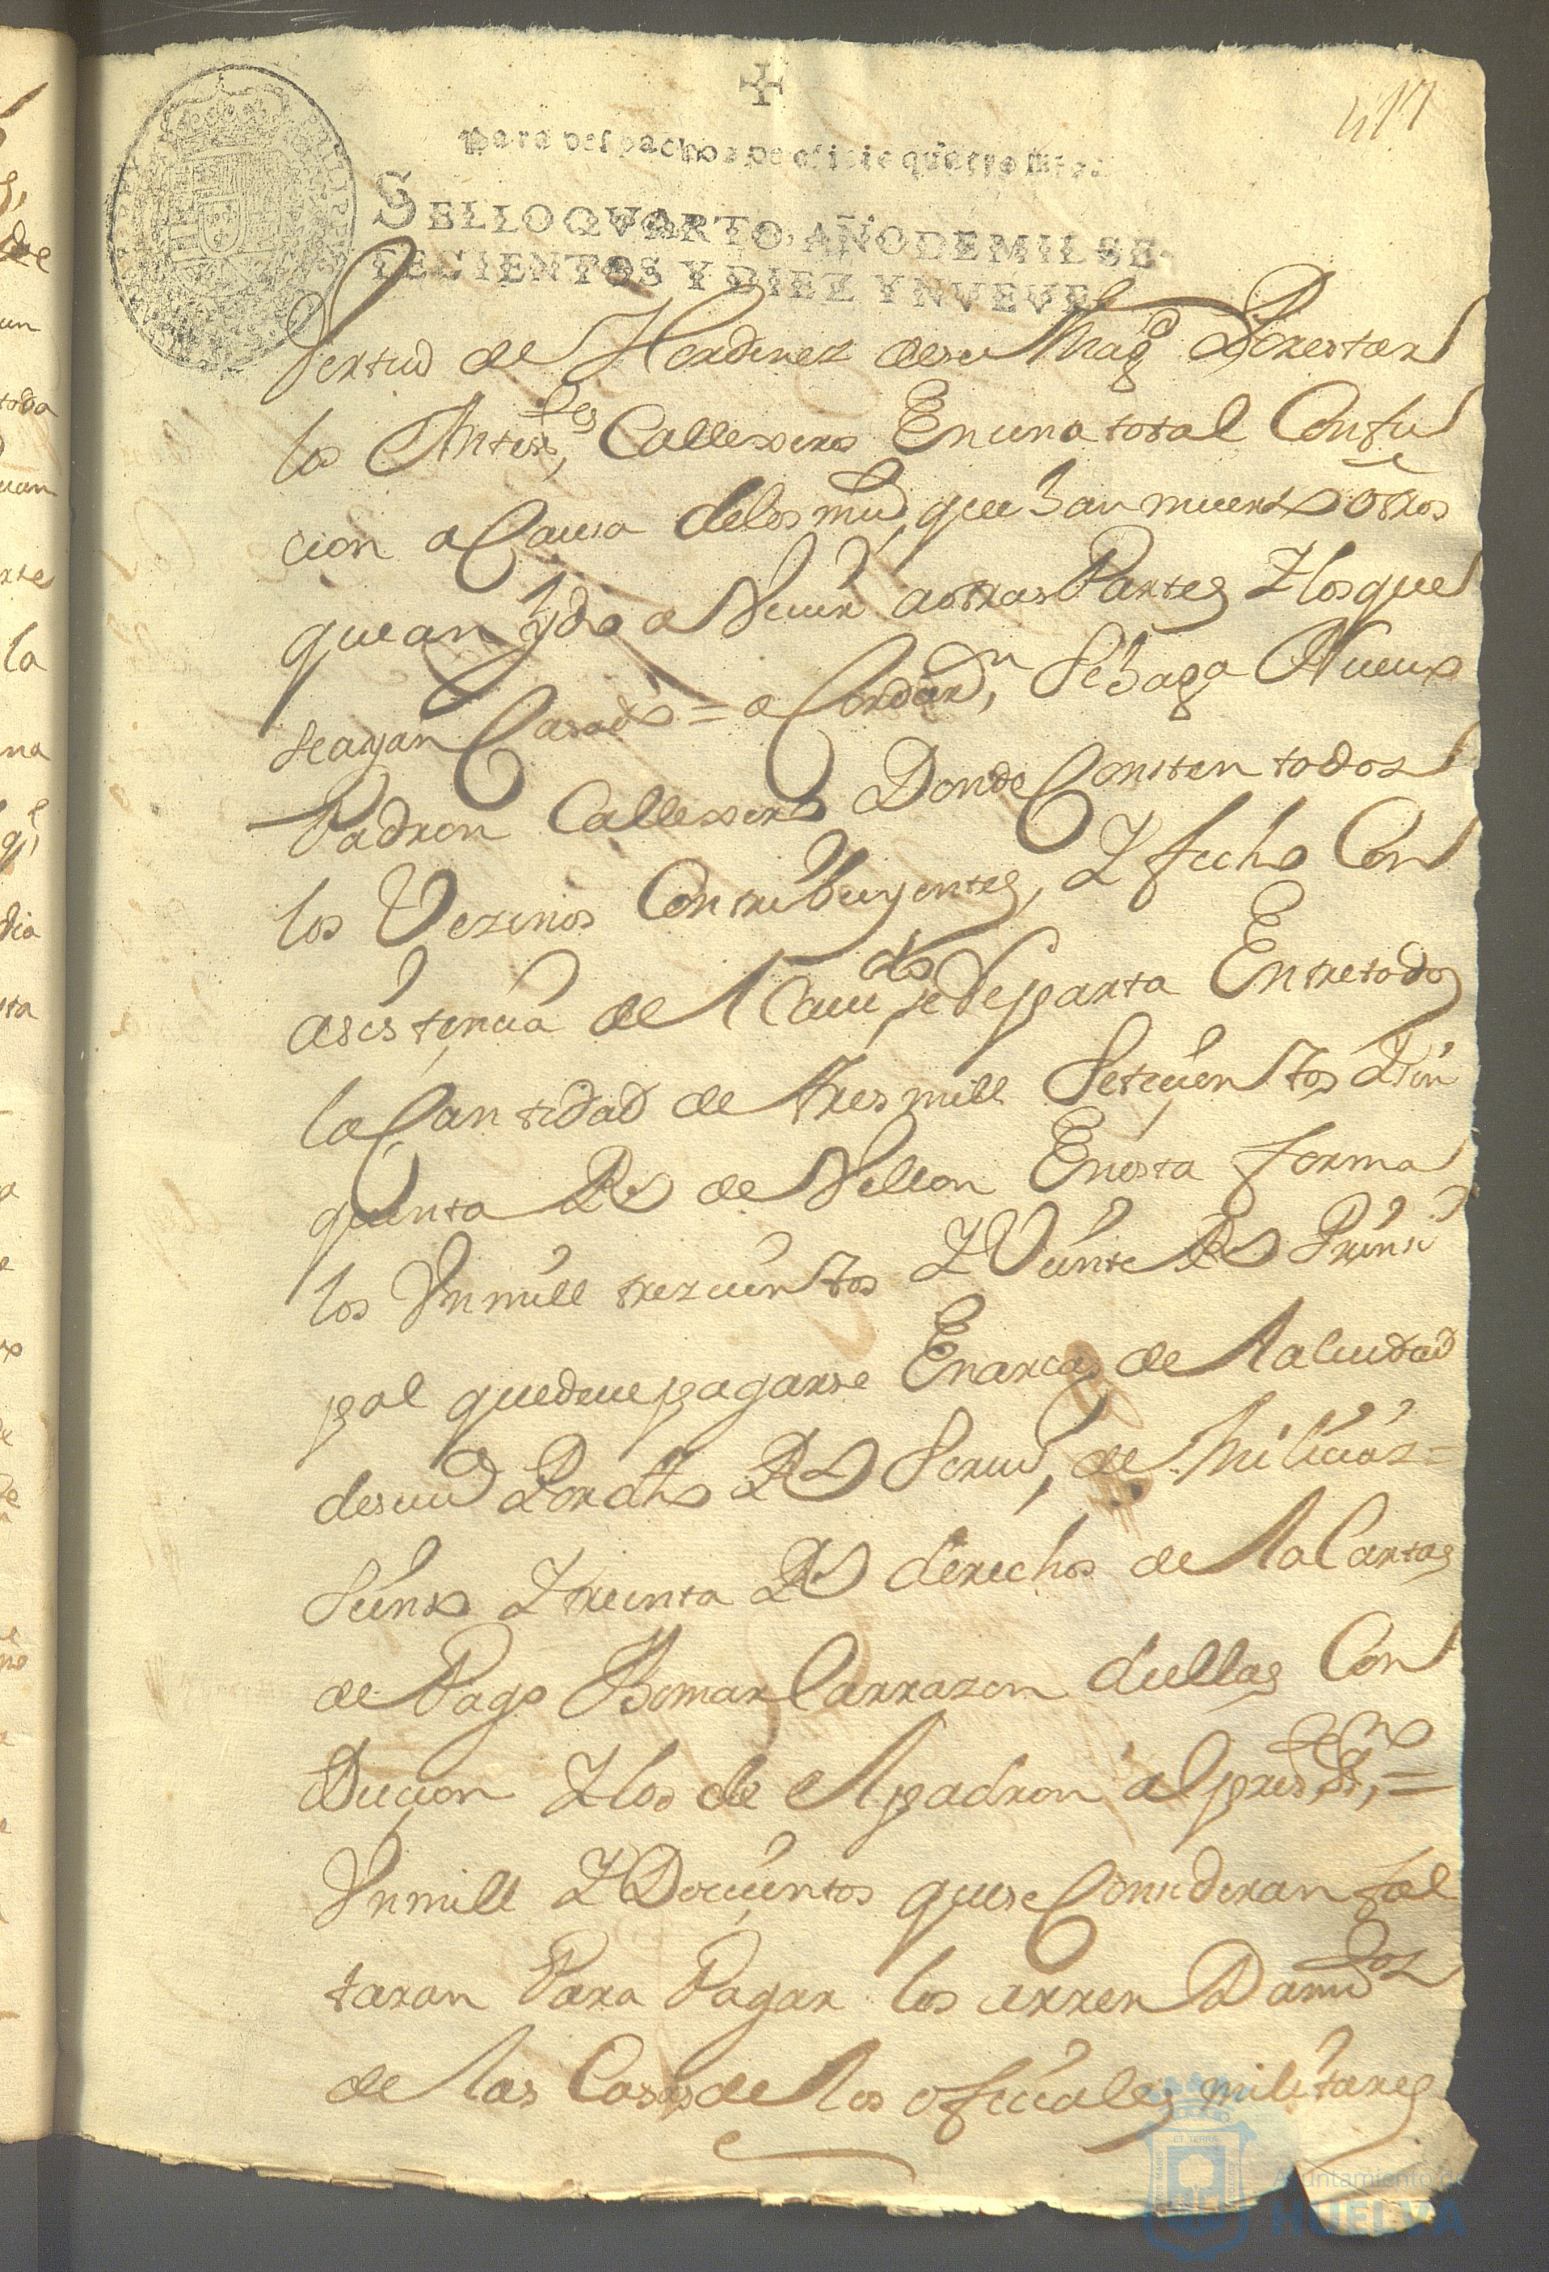 417
Para despachos de oficio quatro mrs.
SELLO QVARTO, AÑO DE MIL SE-
TECIENTOS Y DIEZ Y NVEVE.
Vertud de Hordenez de su Magd Porestar
los Antesres Callexeros En una total Confu
cion a Causa delos mud que han muerto otros
que an ydo a Viuir aotras Partes Y los que
se ayan Casado = a Cordarn, Se haga Nueuo
Padron Callexero Donde Consten todos
los Vezinos Contribuyentes, Y fecho Con
asistencia de la Ciudad se Reparta Entre todos
la Cantidad de tres mill Setecientos Y Sin
quenta Rs de Vellon En esta forma
los Un mill trezientos Y Veinte Rs Prinsi
pal que deue pagarse En arcas de la ciudad
deseuа Por dho Rl Serui, de Milicias =
Siento Y treinta Rs derechos de la Cartas
de Pago tomar la rrazon de ellas Con
Ducion Y los de el padron al press, =
Un mill Y Docientos que se Concideran fal
taran Para Pagar los arrendamtos
de las Casas de los oficiales militares
Ayuntamiento de
HUELVA